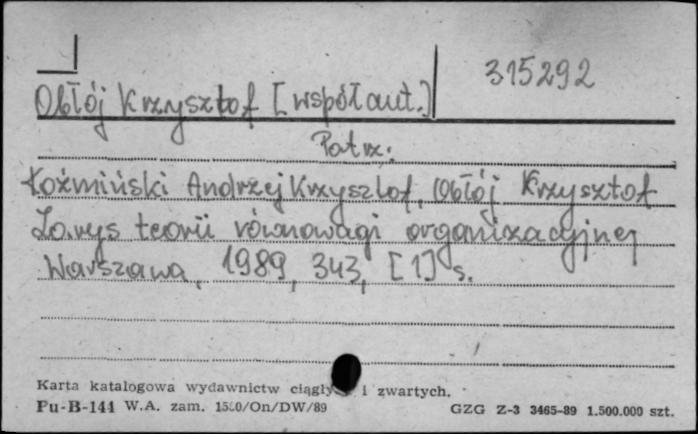 315292
Obłój Krzysztof [współaut.]
Patrz:
Koźmiński Andrzej Krzysztof, Obłój Krzysztof
Zarys teorii równowagi organizacyjnej
Warszawa, 1989, 343, [1] s.
Karta katalogowa wydawnictw i zwartych.
Pu-B-144 W.A. zam. /On/DW/89 GZG Z-3 3465-89 1.500.000 szt.